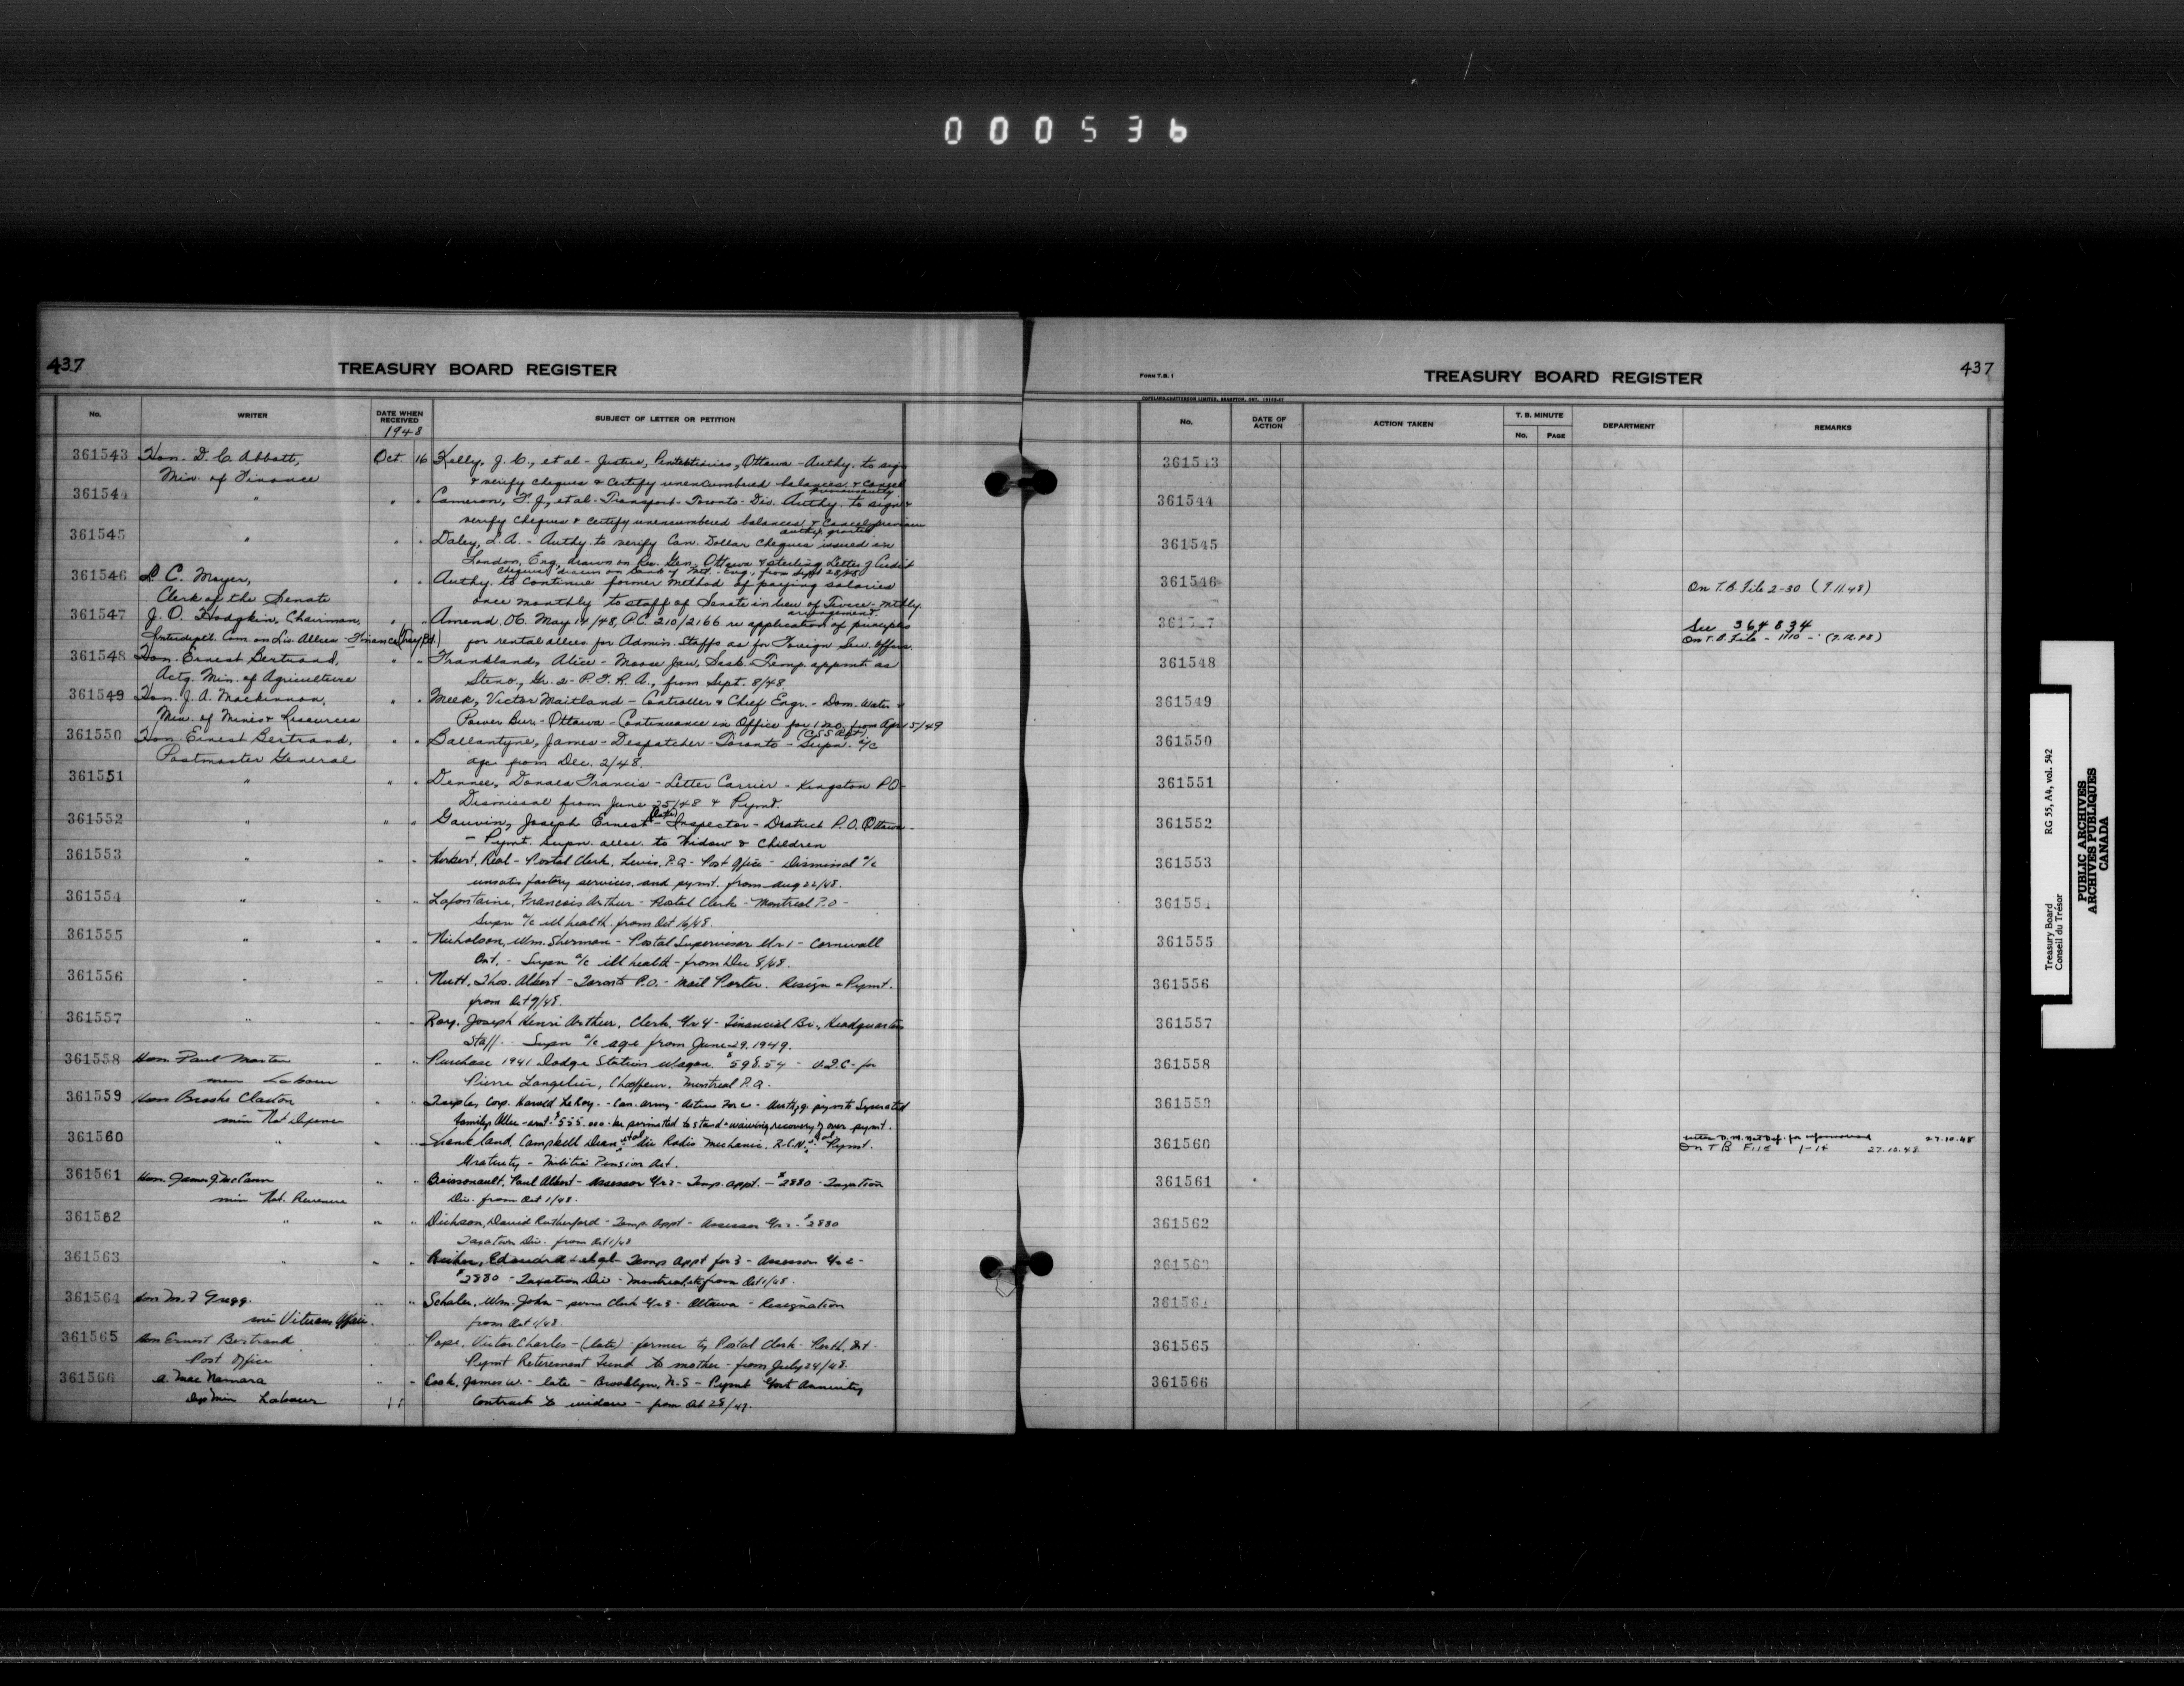 000536
437
TREASURY BOARD REGISTER
No.
WRITER
DATE WHEN RECEIVED
1948
SUBJECT OF LETTER OR PETITION
361543 Hon. D. C. Abbott, Oct 16 Kelly, J. C., et al - Justice, Penitentiaries, Ottawa - Authy. to sign
Min. of Finance & verify cheques & certify unencumbered balances & cancel
361544 " " " Cameron, F. J., et al - Transport - Toronto - Div. Authy. to sign &
verify cheques & certify unencumbered balances & Cancel previous
authy. granted
361545 " " " Daley, L. A. - Authy. to verify Can. Dollar Cheques issued in
London, Eng., drawn on Rec. Gen. Ottawa & sterling Letter of Credit
Cheques drawn on Bank of Mtl. - Eng., from Sept 28/48
361546 L C. Moyer, " " Authy. to continue former method of paying salaries
Clerk of the Senate once monthly to staff of Senate in lieu of Twice-mthly.
arrangement.
361547 J. O. Hodgkin, Chairman, " " Amend. OC. May 14/48, P.C. 210/2166 re application of principles
Interdeptl. Com on Liv. Allces - Finance (Trsy Bd.) for rental allces for Admin. Staffs as for Foreign Serv. Offcrs.
361548 Hon. Ernest Bertrand, " " Frankland, Alice - Moose Jaw, Sask. - Temp. appmt. as
Actg. Min. of Agriculture Steno., Gr. 2 - P. F. R. A., from Sept. 8/48.
361549 Hon. J. A. Mackinnon, " " Meek, Victor Maitland - Controller & Chief Engr. - Dom. Water &
Min. of Mines & Resources Power Bur. - Ottawa - Continuance in Office for 1 mo. from Apr 5/49
361550 Hon. Ernest Bertrand, " " Ballantyne, James - Despatcher - Toronto - Supn. a/c
Postmaster General age from Dec. 2/48.
361551 " " " Dennee, Donald Francis - Letter Carrier - Kingston P.O -
Dismissal from June 25/48 & Pymt.
361552 " " " Gauvin, Joseph Ernest (late) - Inspector - District P.O. Ottawa -
- Pymt. Supn. allce. to Widow & Children
361553 " " " Herbert, Real - Postal Clerk, Levis, P.Q - Post Office - Dismissal a/c
unsatisfactory services, and pymt. from Aug 22/48.
361554 " " " Lafontaine, Francois Arthur - Postal Clerk - Montreal P.O -
Supn a/c ill health from Oct 16/48.
361555 " " " Nicholson, Wm. Sherman - Postal Supervisor Gr 1 - Cornwall
Ont. - Supn a/c ill health - from Dec 8/48.
361556 " " " Nutt, Thos. Albert - Toronto P.O. - Mail Porter. Resign & Pymt.
from Oct 9/48.
361557 " " " Roy, Joseph Henri Arthur, Clerk, Gr 4 - Financial Br., Headquarters
Staff - Supn a/c age from June 29, 1949.
361558 Hon Paul Martin " " Purchase 1941 Dodge Station Wagon $598.54 - U.I.C - for
min Labour Pierre Langelier, Chauffeur. Montreal P.Q.
361559 Hon Brooke Claxton " " Corp. Harold LeRoy. - Can. Army - Active Force -
min Nat Defence family Allce be permitted to stand & waiving recovery of over pymt.
361560 " " " Shankland, Campbell Dean, et al Air Radio Mechanic, R.C.N. Pymt.
Gratuity - Militia Pension Act.
361561 Hon. James J. McCann " " Boissonault, Paul Albert - Assessor Gr 2 - Temp. appt. - $2880 - Taxation
min Nat. Revenue Div. from Oct 1/48.
361562 " " " Dickson, David Rutherford - Temp. Appt - Assessor Gr 2 - $2880
Taxation Div. from Oct 1/48
361563 " " " Edouard et al - Temp Appt for 3 - Assessor Gr 2 -
$2880 - Taxation Div - Montreal, etc from Oct 1/48.
361564 Hon M. F Gregg. " " Wm. John - Clerk Gr 3 - Ottawa - Resignation
min Veterans Affairs. from Oct 1/48.
361565 Hon Ernest Bertrand " " Pope, Victor Charles - (late) - former ty Postal Clerk - Perth, Ont -
Post Office Pymt Retirement Fund to mother - from July 24/48.
361566 A. MacNamara " " Cook, James W. - late - Brooklyn, N.S - Pymt Govt Annuity
Dep Min Labour Contract to widow - from Oct 28/47.
FORM T.B. 1
TREASURY BOARD REGISTER
437
COPELAND-CHATTERSON LIMITED, BRAMPTON, ONT.
No.
DATE OF ACTION
ACTION TAKEN
T. B. MINUTE
No. PAGE
DEPARTMENT
REMARKS
361543
361544
361545
361546 On T.B. File 2-30 (9.11.48)
361547 See 364834
On T.B. File - 1-10 - (7.12.48)
361548
361549
361550
361551
361552
361553
361554
361555
361556
361557
361558
361559
361560 27.10.48
On T B File 1-14 27.10.48
361561
361562
361563
361564
361565
361566
Treasury Board
Conseil du Trésor
RG 55, A4, vol. 542
PUBLIC ARCHIVES
ARCHIVES PUBLIQUES
CANADA